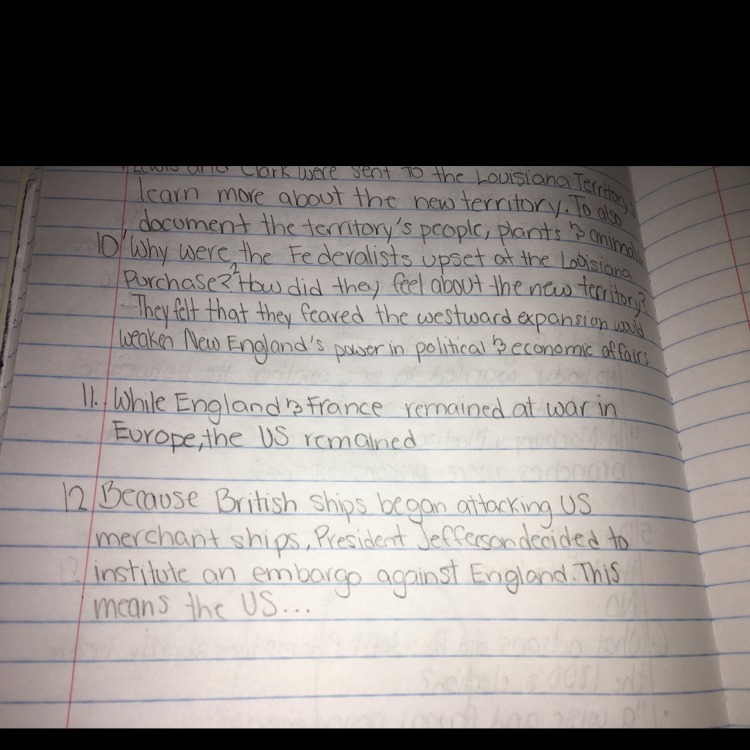 Clark were sent to the Louisiana Territory
learn more about the new territory. To also
document the territory's people, plants & animals
10. Why were the Federalists upset at the Louisiana
Purchase? How did they feel about the new territory?
They felt that they feared the westward expansion would
weaken New England's power in political & economic affairs
11. While England & France remained at war in
Europe, the US remained
12 Because British ships began attacking US
merchant ships, President Jefferson decided to
institute an embargo against England. This
means the US...